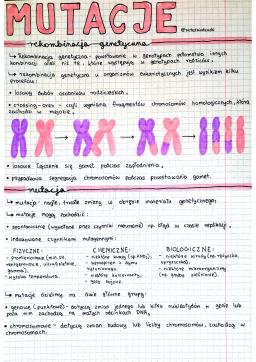 MUTACJE
rekombinacja genetyczna
↳ Rekombinacja genetyczna - powstawanie w genotypach potomstwa innych
kombinacji alleli niż te, które występują w genotypach rodziców.
↳ rekombinacja genetyczna u organizmów eukariotycznych jest wynikiem kilku
procesów:
• losowy dobór osobników rodzicielskich,
• crossing-over - czyli wymiana fragmentów chromosomów homologicznych, która
zachodzi w mejozie,
• losowe łączenie się gamet podczas zapłodnienia,
• przypadkowa segregacja chromosomów podczas powstawania gamet.
mutacja
↳ mutacja: nagłe, trwałe zmiany w obrębie materiału genetycznego,
↳ mutacje mogą zachodzić:
• spontanicznie (wywołane przez czynniki naturalne) np. błąd w czasie replikacji,
• indukowane czynnikami mutagennymi:
FIZYCZNE: CHEMICZNE: BIOLOGICZNE:
- Promieniowanie (min. UV,
rentgenowskie, ultrafioletowe,
gamma),
- wysoka temperatura.
- niektóre kwasy
- benzopiren z dymu
tytoniowego,
- niektóre wirusy
- niektóre mikroorganizmy
↳ mutacje dzielimy na dwie główne grupy:
• genowe (punktowe) - dotyczą zmian jednego lub kilku nukleotydów w genie lub
poza nim zachodzą na małych odcinkach DNA,
• chromosomowe - dotyczą zmian budowy lub liczby chromosomów, zachodzą w
chromosomach.